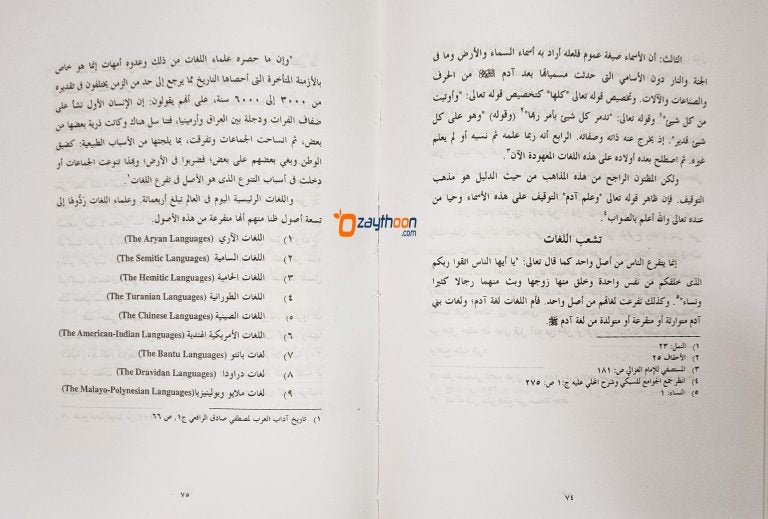 الثالث: أن الأسماء صيغة عموم فلعله أراد به أسماء السماء والأرض وما فى
الجنة والنار دون الأسامي التى حدثت مسمياتها بعد آدم ﷺ من الحرف
والصناعات والآلات. وتخصيص قوله تعالى "كلها" كتخصيص قوله تعالى: "وأوتيت
من كل شيئ"¹ وقوله تعالى: "تدمر كل شيئ بأمر ربها"² وقوله) "وهو على كل
شيئ قدير". إذ يخرج عنه ذاته وصفاته. الرابع أنه ربما علمه ثم نسيه أو لم يعلم
غيره. ثم اصطلح بعده أولاده على هذه اللغات المعهودة الآن³.
ولكن المظنون الراجح من هذه المذاهب من حيث الدليل هو مذهب
التوقيف. فإن ظاهر قوله تعالى "وعلم آدم" التوقيف على هذه الأسماء وحيا من
عنده تعالى والله أعلم بالصواب⁴.
تشعب اللغات
إنما يتفرع الناس من أصل واحد كما قال تعالى: "يا أيها الناس اتقوا ربكم
الذى خلقكم من نفس واحدة وخلق منها زوجها وبث منهما رجالا كثيرا
ونساء"⁵. وكذلك تفرعت لغاتهم من أصل واحد. فأم اللغات لغة آدم؛ ولغات بني
آدم متوازلة أو متفرعة أو متولدة من لغة آدم ﷺ.
١) النمل: ٢٣
٢) الأحقاف ٢٥
٣) المستصفي للإمام الغزالي ص: ١٨١
٤) انظر جمع الجوامع للسبكي وشرح المحلي عليه ج:١ ص: ٢٧٥
٥) النساء: ١
٧٤
"وإن ما حصره علماء اللغات من ذلك وعدوه أمهات إنما هو خاص
بالأزمنة المتأخرة التى أحصاها التاريخ مما يرجع إلى حد من الزمن يختلفون في تقديره
من ٣٠٠٠ إلى ٦٠٠٠ سنة، على أنهم يقولون: إن الإنسان الأول نشأ على
ضفاف الفرات ودجلة بين العراق وأرمينيا، فتناسل هناك وكانت ذرية بعضها من
بعض، ثم انساحت الجماعات وتفرقت، بما يلجئها من الأسباب الطبيعية: كضيق
الوطن وبغي بعضهم على بعض، فضربوا فى الأرض؛ وهذا تنوعت الجماعات أو
دخلت فى أسباب التنوع الذى هو الأصل فى تفرع اللغات¹.
واللغات الرئيسية اليوم فى العالم تبلغ أربعمائة. وعلماء اللغات رَدُّوهَا إلى
تسعة أصول ظنا منهم أنها متفرعة من هذه الأصول.
١) اللغات الآري (The Aryan Languages)
٢) اللغات السامية (The Semitic Languages)
٣) اللغات الحامية (The Hemitic Languages)
٤) اللغات الطورانية (The Turanian Languages)
٥) اللغات الصينية (The Chinese Languages)
٦) اللغات الأمريكية الهندية (The American-Indian Languages)
٧) لغات بانتو (The Bantu Languages)
٨) لغات دراودا (The Dravidan Languages)
٩) لغات ملايو وبولينيزيا(The Malayo-Polynesian Languages)
١) تاريخ آداب العرب لمصطفي صادق الرافعي ج١، ص ٦٦
٧٥
zaythoon
.com